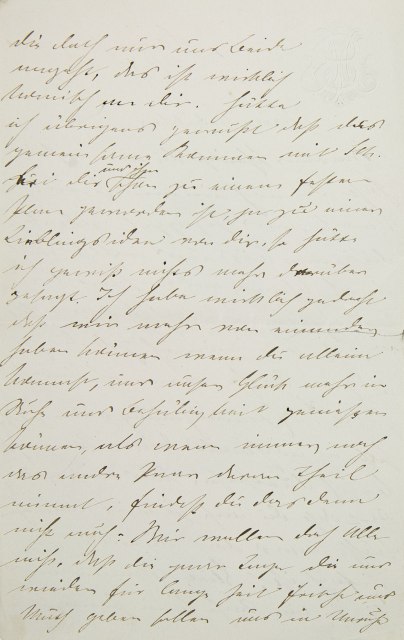 die doch nur uns beide
angeht, das ist wirklich
komisch an dir. Hätte
ich übrigens gewußt daß das
gemeinsame Kommen mit
bei dir und ihm zu einem festen
Plan geworden ist, ja zu einer
Lieblingsidee von dir, so hätte
ich gewiß nichts mehr darüber
gesagt. Ich habe wirklich gedacht
daß wir mehr von einander
haben können wenn du allein
kommst, und unser Glück mehr in
Ruhe und genießen
können, als wenn immer noch
das andre Paar daran Theil
nimmt, findest du das denn
nicht auch. Wir wollen doch Alle
nicht, daß die paar Tage die uns
wieder für lange Zeit Frische und
Muth geben sollen uns in Unruhe